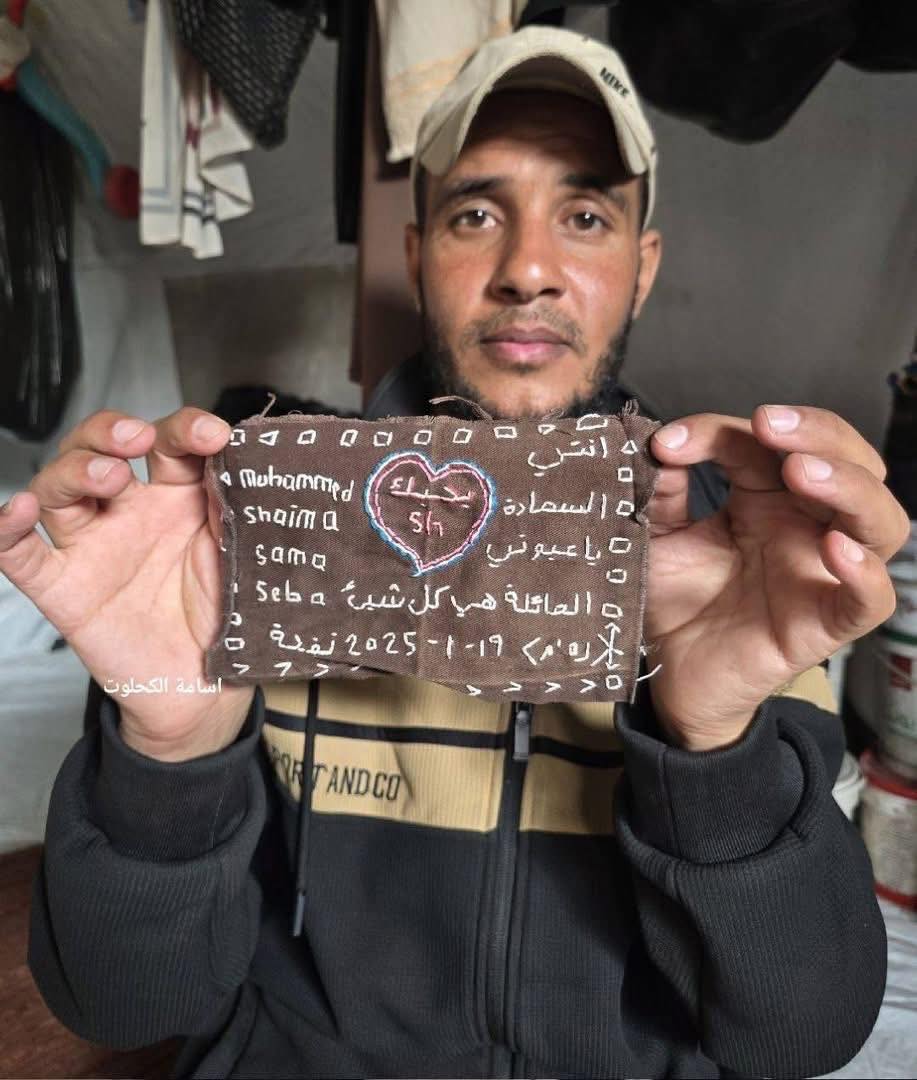 NIKE
انتي
Muhammed
بحبك
Sh
السعادة
Shaima
يا عيوني
Sama
العائلة هي كل شيئ
Seba
19-1-2025 نفحة
اسامة الكحلوت
PORT AND CO